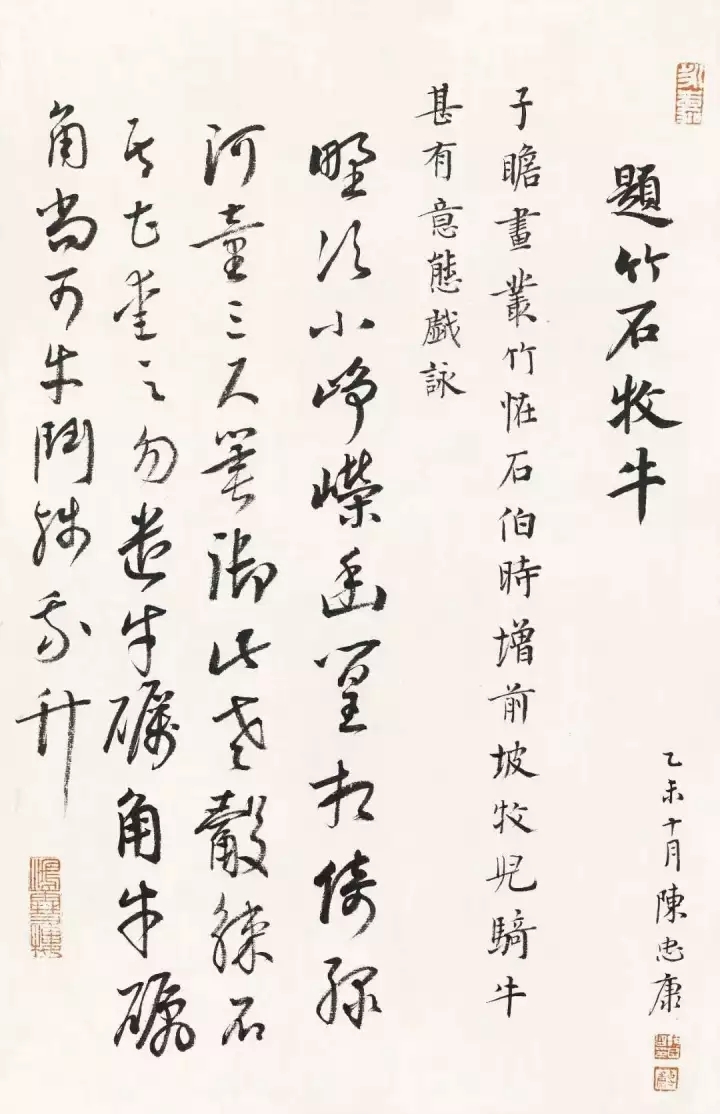 題竹石牧牛
乙未十月陳忠康
子瞻畫叢竹恠石伯時增前坡牧兒騎牛
甚有意態戲詠
野次小崢嶸幽篁相倚綠
阿童三尺箠御此老觳觫石
吾甚愛之勿遣牛礪角牛礪
角尚可牛鬥殘我竹